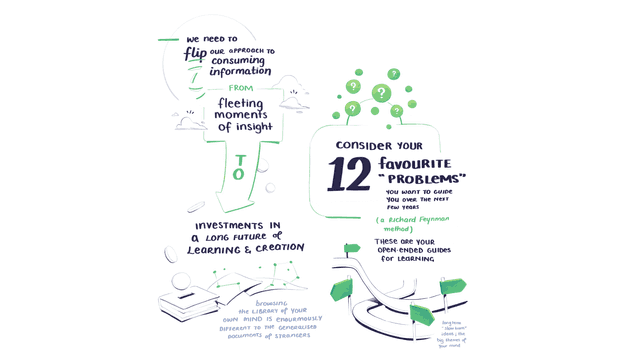 WE NEED TO
flip OUR APPROACH TO
consuming
information
FROM
fleeting
moments
of insight
TO
INVESTMENTS IN
A LONG FUTURE of
LEARNING & CREATION
browsing
THE LIBRARY OF YOUR
OWN MIND IS ENOURMOUSLY
DIFFERENT TO THE GENERALISED
DOCUMENTS OF STRANGERS
? ? ? ? ?
CONSIDER YOUR
12 favourite
"PROBLEMS"
YOU WANT TO GUIDE
YOU OVER THE NEXT
FEW YEARS
(a Richard Feynman
method)
THESE ARE YOUR
OPEN-ENDED GUIDES
FOR LEARNING
long term
"slow burn"
the
big themes of
your mind